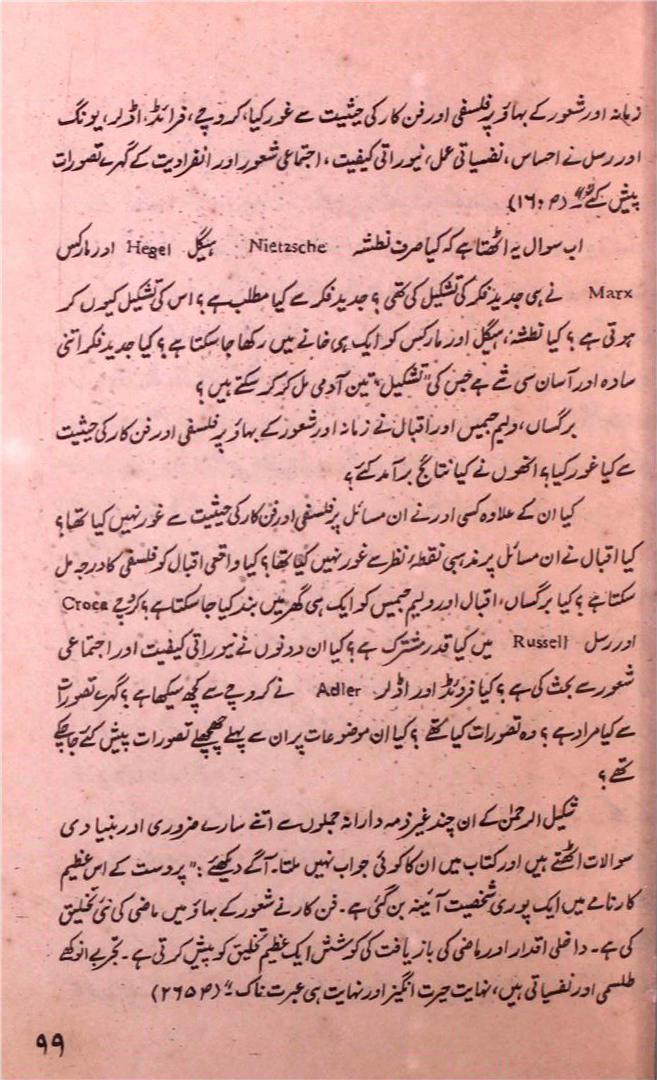 زمانہ اور شعور کے بہاؤ پر فلسفی اور فن کار کی حیثیت سے غور کیا، کروچے، فرائڈ، اڈلر، یونگ
اور رسل نے احساس، نفسیاتی عمل، نیوراتی کیفیت، اجتماعی شعور اور انفرادیت کے گہرے تصورات
پیش کئے۔" (ص ۱۶)
اب سوال یہ اٹھتا ہے کہ کیا صرف نطشہ Nietzsche ہیگل Hegel اور مارکس
Marx نے ہی جدید فکر کی تشکیل کی تھی؟ جدید فکر سے کیا مطلب ہے؟ اس کی تشکیل کیوں کر
ہوتی ہے؟ کیا نطشہ، ہیگل اور مارکس کو ایک ہی خانے میں رکھا جا سکتا ہے؟ کیا جدید فکر اتنی
سادہ اور آسان سی شے ہے جس کی "تشکیل" تین آدمی مل کر کر سکتے ہیں؟
برگساں، ولیم جیمس اور اقبال نے زمانہ اور شعور کے بہاؤ پر فلسفی اور فن کار کی حیثیت
سے کیا غور کیا؟ انھوں نے کیا نتائج برآمد کئے؟
کیا ان کے علاوہ کسی اور نے ان مسائل پر فلسفی اور فن کار کی حیثیت سے غور نہیں کیا تھا؟
کیا اقبال نے ان مسائل پر مذہبی نقطۂ نظر سے غور نہیں کیا تھا؟ کیا واقعی اقبال کو فلسفی کا درجہ مل
سکتا ہے؟ کیا برگساں، اقبال اور ولیم جیمس کو ایک ہی گھر میں بند کیا جا سکتا ہے؟ کروچے Croce
اور رسل Russell میں کیا قدر مشترک ہے؟ کیا ان دونوں نے نیوراتی کیفیت اور اجتماعی
شعور سے بحث کی ہے؟ کیا فروئڈ اور اڈلر Adler نے کروچے سے کچھ سیکھا ہے؟ گہرے تصورات
سے کیا مراد ہے؟ وہ تصورات کیا تھے؟ کیا ان موضوعات پر ان سے پہلے چھچھلے تصورات پیش کئے جا چکے
تھے؟
شکیل الرحمٰن کے ان چند غیر ذمہ دارانہ جملوں سے اتنے سارے ضروری اور بنیادی
سوالات اٹھتے ہیں اور کتاب میں ان کا کوئی جواب نہیں ملتا۔ آگے دیکھئے: "پروست کے اس عظیم
کارنامے میں ایک پوری شخصیت آئینہ بن گئی ہے۔ فن کار نے شعور کے بہاؤ میں ماضی کی نئی تخلیق
کی ہے۔ داخلی اقدار اور ماضی کی بازیافت کی کوشش ایک عظیم تخلیق کو پیش کرتی ہے۔ تجربے انوکھے
طلسمی اور نفسیاتی ہیں، نہایت حیرت انگیز اور نہایت ہی عبرت ناک۔" (ص ۲۶۵)
۹۹